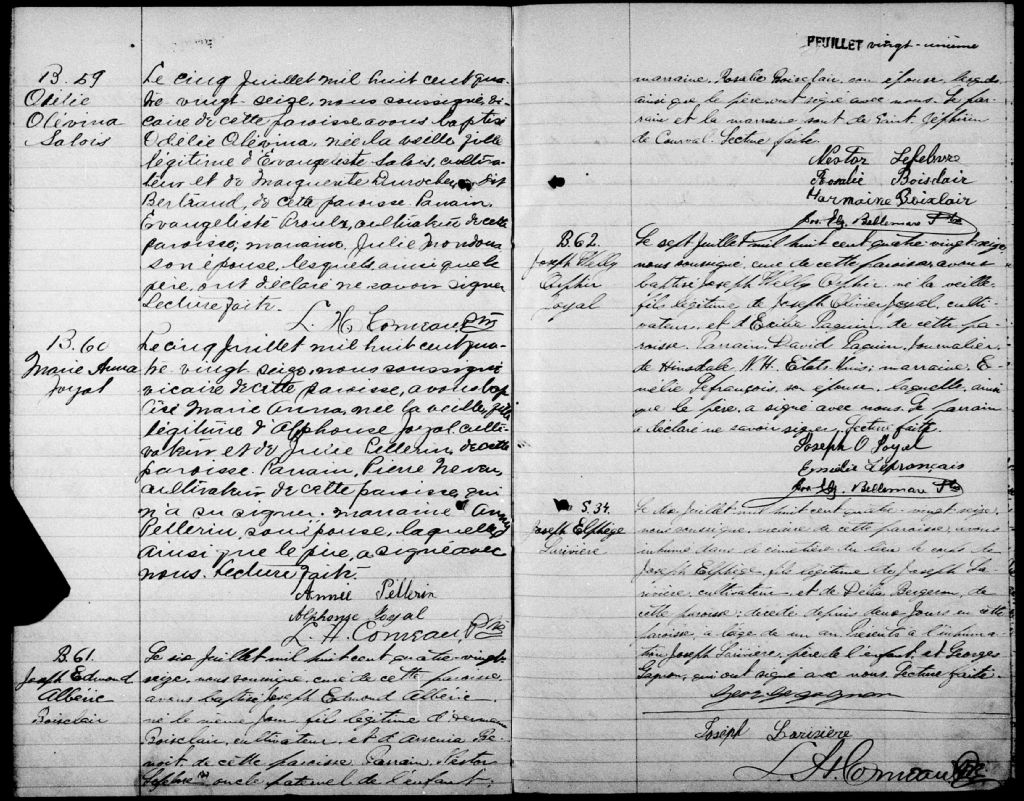 B. 59
Odélie
Olévina
Salois
Le cinq Juillet mil huit cent qua-
tre vingt-seize, nous soussigné, vi-
caire de cette paroisse avons baptisé
Odélie Olévina, née la veille, fille
légitime d'Evangeliste Salois, cultiva-
teur et de Marguerite Durocher dit
Bertrand, de cette paroisse. Parrain,
Evangeliste Proulx, cultivateur de cette
paroisse; marraine, Julie Mondou
son épouse, lesquels, ainsi que le
père, ont déclaré ne savoir signer
Lecture faite.
L. H. Comeau Ptre
B. 60
Marie Anna
Joyal
Le cinq Juillet mil huit cent qua-
tre vingt seize, nous soussigné
vicaire de cette paroisse, avons bap-
tisé Marie Anna, née la veille, fille
légitime d'Alphonse Joyal, culti-
vateur et de Julie Pellerin, de cette
paroisse. Parrain, Pierre
cultivateur, de cette paroisse, qui
n'a su signer; marraine
Pellerin, son épouse, laquelle,
ainsi que le père, a signé avec
nous. Lecture faite.
Annie Pellerin
Alphonse Joyal
L. H. Comeau Ptre
B. 61.
Joseph Edmond
Albéric
Boisclair
Le six Juillet mil huit cent quatre-vingt-
seize, nous soussigné, curé de cette paroisse,
avons baptisé Joseph Edmond Albéric
né le même jour, fils légitime d'
Boisclair, cultivateur, et d'Arsenia Be-
noit, de cette paroisse. Parrain, Nestor
Lefebvre oncle paternel de l'enfant;
FEUILLET vingt-unième
marraine, Rosalie Boisclair, son épouse, lesquels
ainsi que le père, ont signé avec nous. Le par-
rain et la marraine sont de Saint Zéphirin
de Courval. Lecture faite.
Nestor Lefebvre
Rosalie Boisclair
Harmaine Boixlair
Jos. Elz. Bellemare Ptre
B. 62.
Joseph Willy
Orphir
Joyal
Le sept Juillet mil huit cent quatre vingt-seize,
nous soussigné, curé de cette paroisse, avons
baptisé Joseph Willy Orphir, né la veille
fils légitime de Joseph Olivier Joyal, culti-
vateur, et d'Exilia Paquin, de cette pa-
roisse. Parrain, David Paquin, journalier,
de Hinsdale N. H. États-Unis; marraine, E-
mélie Lefrançois, son épouse. Laquelle, ainsi
que le père, a signé avec nous. Le parrain
a déclaré ne savoir signer. Lecture faite.
Joseph O Joyal
Emelie Lefrançais
Jos. Elz. Bellemare Ptre
S. 34.
Joseph Elphège
Larivière
Le dix Juillet mil huit cent quatre-vingt seize,
nous soussigné, vicaire de cette paroisse, avons
inhumé dans le cimetière du lieu le corps de
Joseph Elphège, fils légitime de Joseph La-
rivière, cultivateur, et de Délia Bergeron, de
cette paroisse; décédé depuis deux jours en cette
paroisse, à l'âge de un an. Présents à l'inhuma-
tion Joseph Larivière, père de l'enfant, et Georges
Gagnon, qui ont signé avec nous. Lecture faite.
George gagnon
Joseph Larixière
L. H. Comeau Ptre